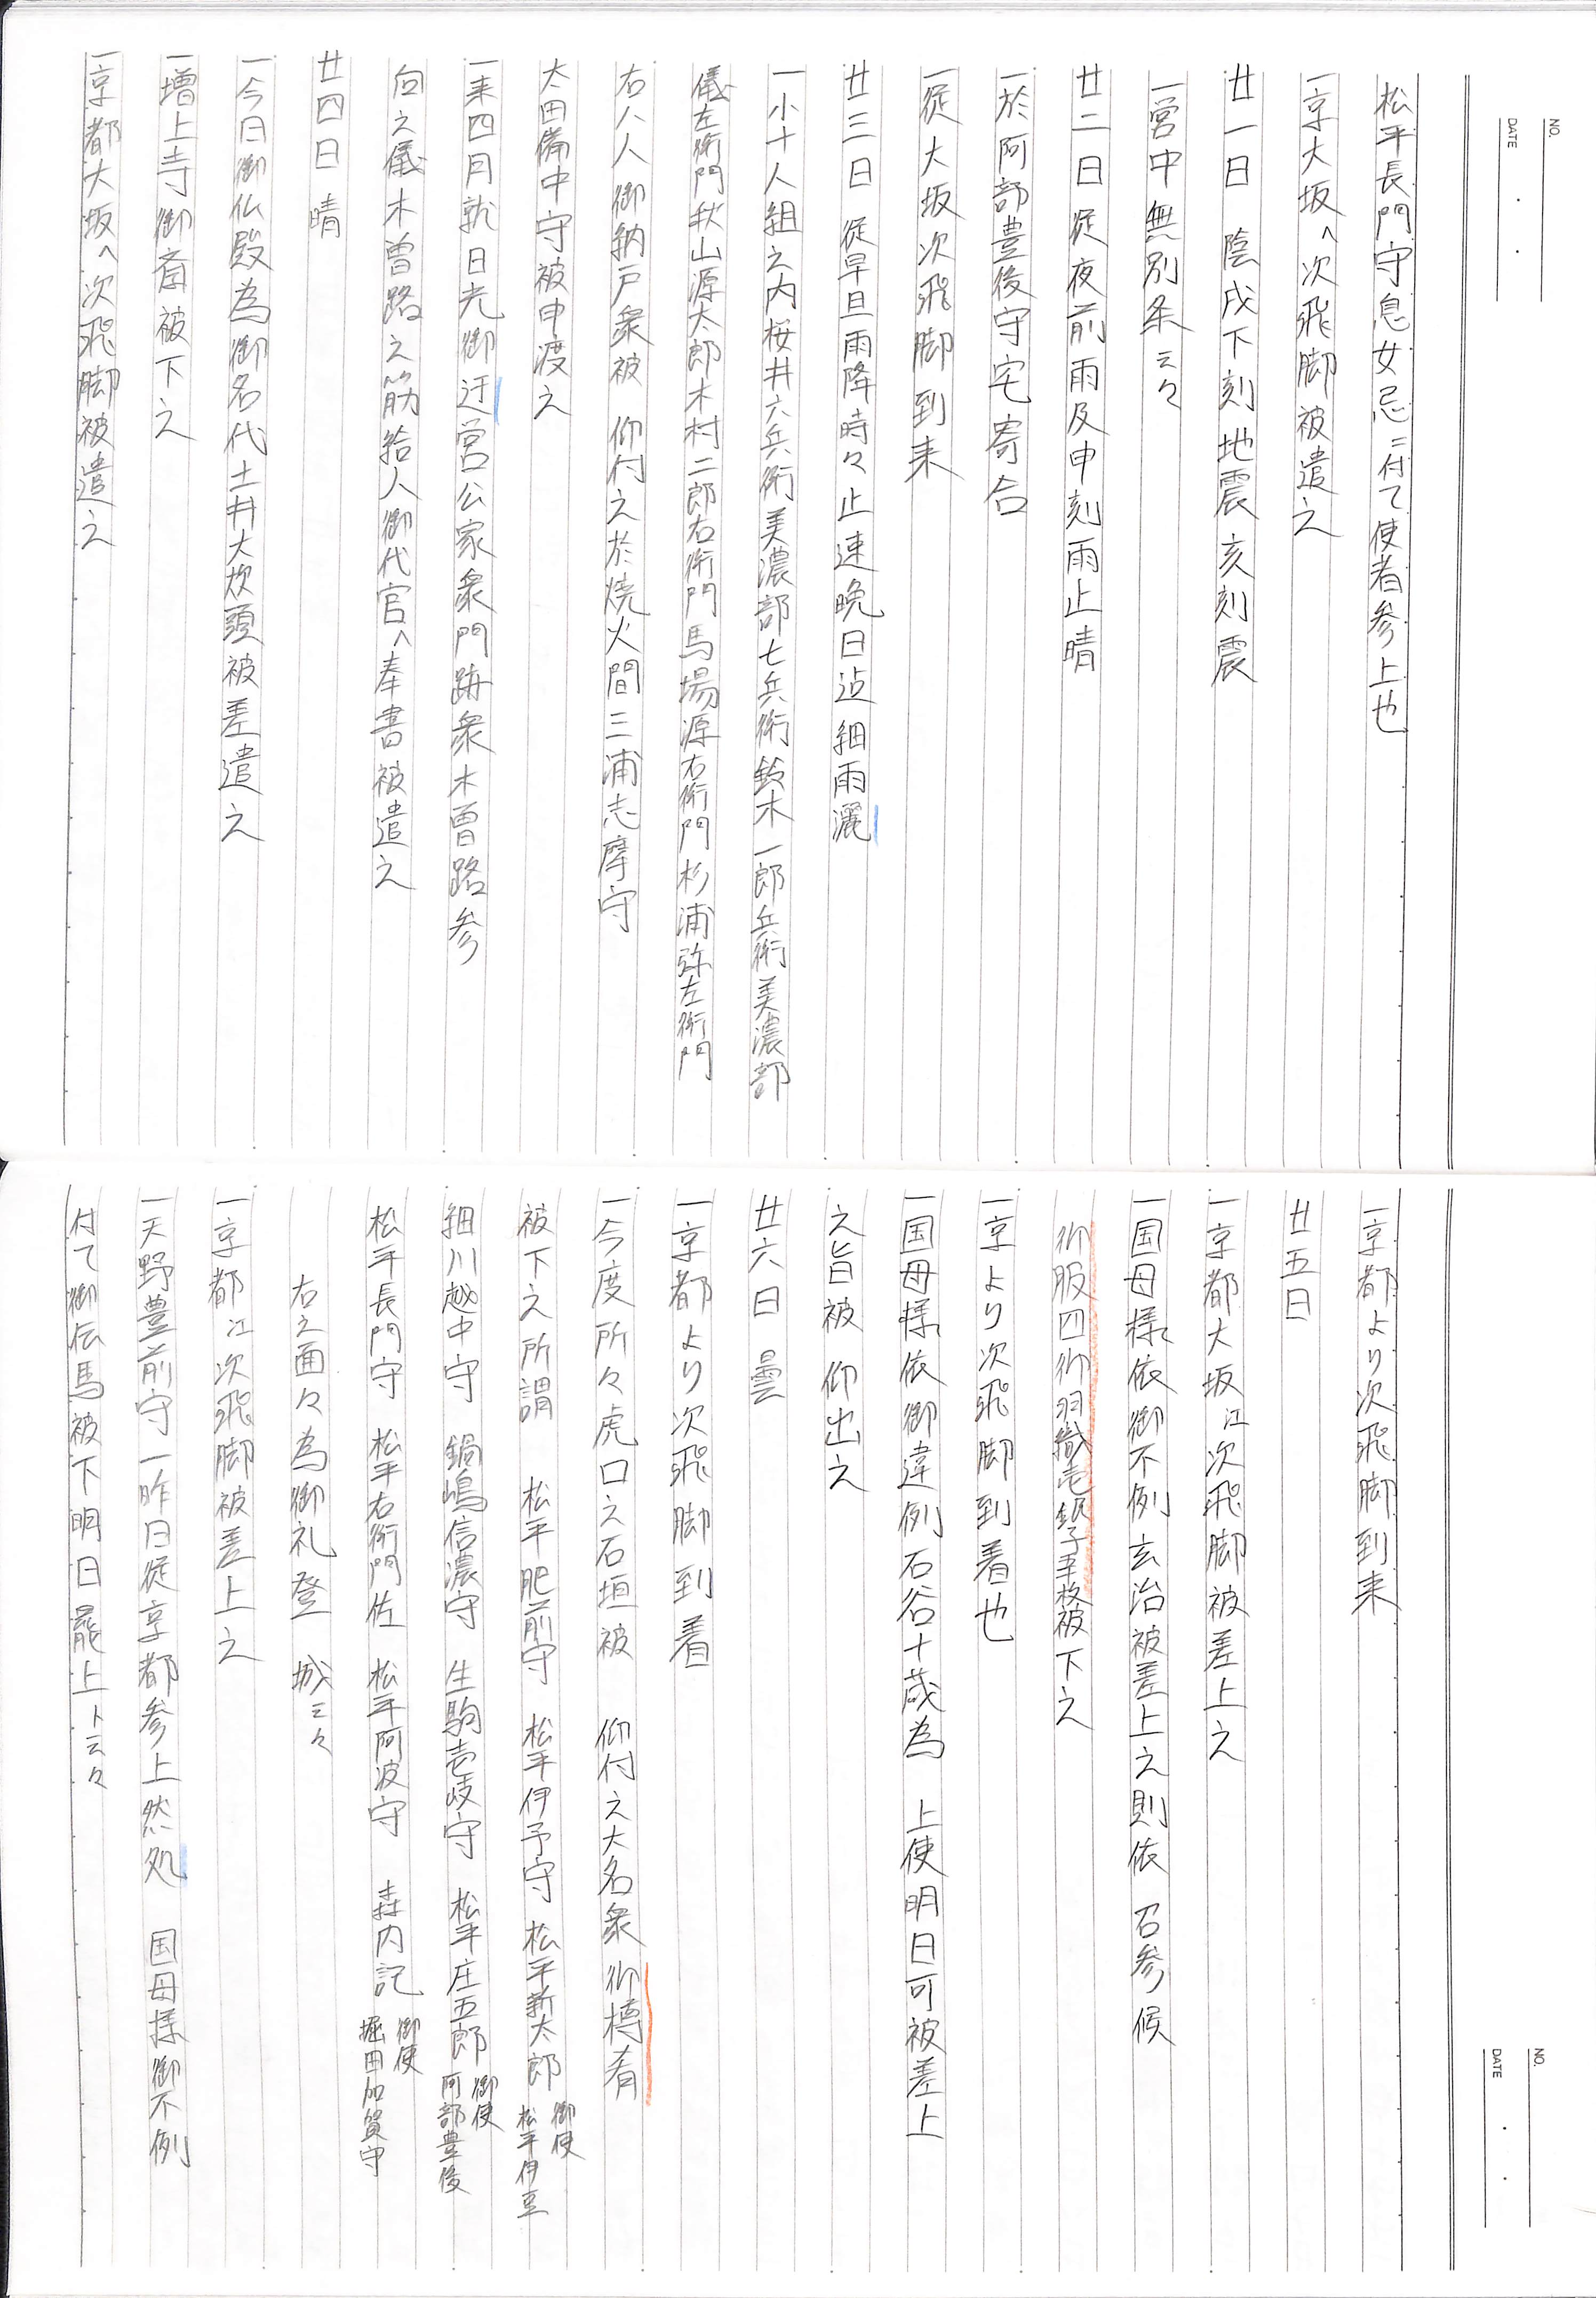 NO.
DATE
松平長門守息女忌ニ付て使者参上也
一京大坂へ次飛脚被遣之
廿一日 陰戌下刻地震亥刻震
一営中無別条云々
廿二日 従夜前雨及申刻雨止晴
一於阿部豊後守宅寄合
一従大坂次飛脚到来
廿三日 従早旦雨降時々止速晩日迠細雨灑
一小十人組之内桜井六兵衛美濃部七兵衛鈴木一郎兵衛美濃部
儀左衛門秋山源太郎木村二郎右衛門馬場源右衛門杉浦弥左衛門
右八人御納戸衆被 仰付之於焼火間三浦志摩守
太田備中守被申渡之
一来四月就日光御迁営公家衆門跡衆木曽路参
向之儀木曽路之筋給人御代官へ奉書被遣之
廿四日 晴
一今日御仏殿為御名代土井大炊頭被差遣之
一増上寺御斎被下之
一京都大坂へ次飛脚被遣之
NO.
DATE
一京都より次飛脚到来
廿五日
一京都大坂江次飛脚被差上之
一国母様依御不例玄治被差上之則依 召参候
御服四御羽織壱銀子五枚被下之
一京より次飛脚到着也
一国母様依御違例石谷十蔵為 上使明日可被差上
之旨被 仰出之
廿六日 曇
一京都より次飛脚到着
一今度所々虎口之石垣被 仰付之大名衆御樽肴
被下之所謂 松平肥前守 松平伊予守 松平新太郎 御使 松平伊豆
細川越中守 鍋嶋信濃守 生駒壱岐守 松平庄五郎 御使 阿部豊後
松平長門守 松平右衛門佐 松平阿波守 森内記 御使 堀田加賀守
右之面々為御礼登 城云々
一京都江次飛脚被差上之
一天野豊前守一昨日従京都参上然処 国母様御不例
付て御伝馬被下明日罷上ト云々